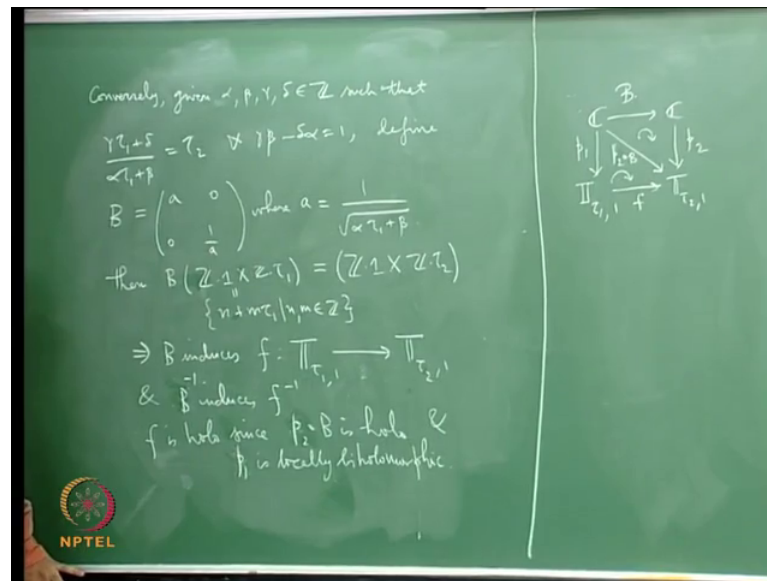 Conversely, given α, β, γ, δ ∈ ℤ such that
(γτ₁+δ)/(ατ₁+β) = τ₂ & γβ − δα = 1, define
B = (a 0; 0 1/a) where a = 1/√(ατ₁+β)
then B(ℤ.1 × ℤ.τ₁) = (ℤ.1 × ℤ.τ₂)
{n + mτ₁ | n, m ∈ ℤ}
⇒ B induces f : 𝕋_{τ₁,1} ⟶ 𝕋_{τ₂,1}
& B⁻¹ induces f⁻¹
f is holo since p₂∘B is holo &
p₁ is locally biholomorphic.
B
ℂ ⟶ ℂ
p₁ p₂∘B p₂
𝕋_{τ₁,1} ⟶ 𝕋_{τ₂,1}
f
NPTEL